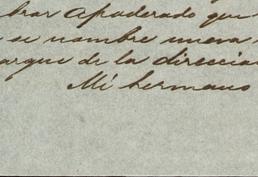 brar apoderado que
se nombre nueva
argue de la direccia
Mi hermano